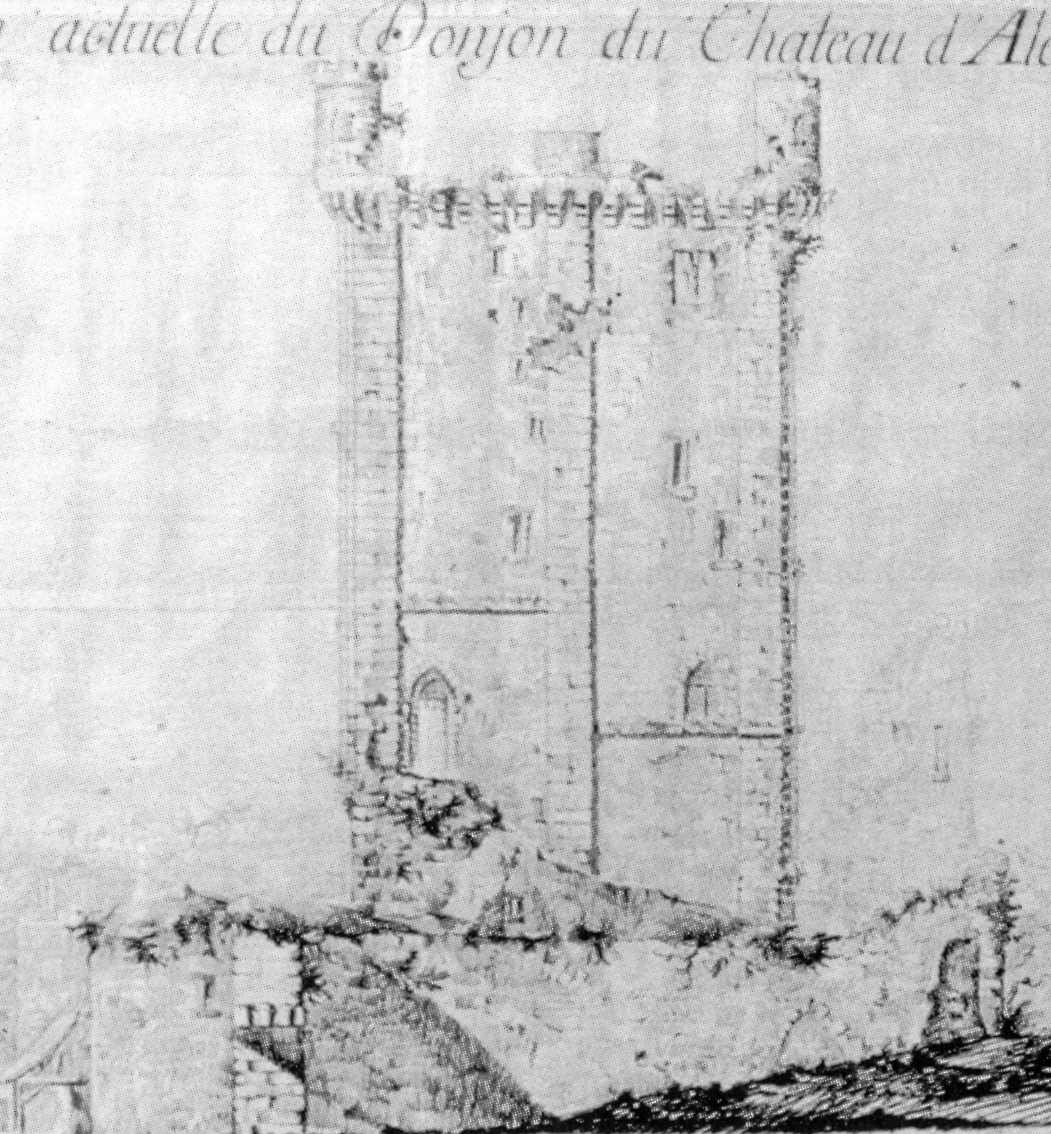 actuelle du Donjon du Chateau d'Ale